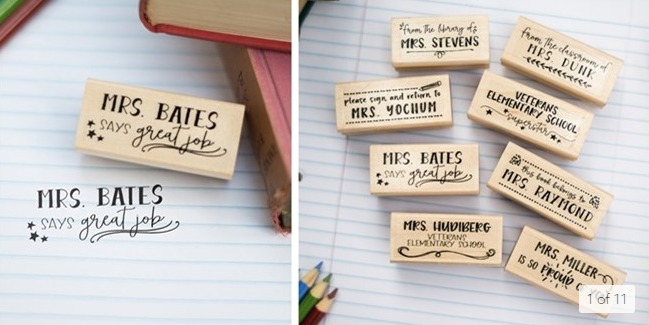 MRS. BATES
SAYS great job
MRS. BATES
SAYS great job
from the library of
MRS. STEVENS
from the classroom of
MRS. DUNK
please sign and return to
MRS. YOCHUM
VETERANS
ELEMENTARY SCHOOL
superstar
MRS. BATES
SAYS great job
this book belongs to
MRS. RAYMOND
MRS. HUDIBERG
VETERANS
ELEMENTARY SCHOOL
MRS. MILLER
IS SO PROUD
1 of 11